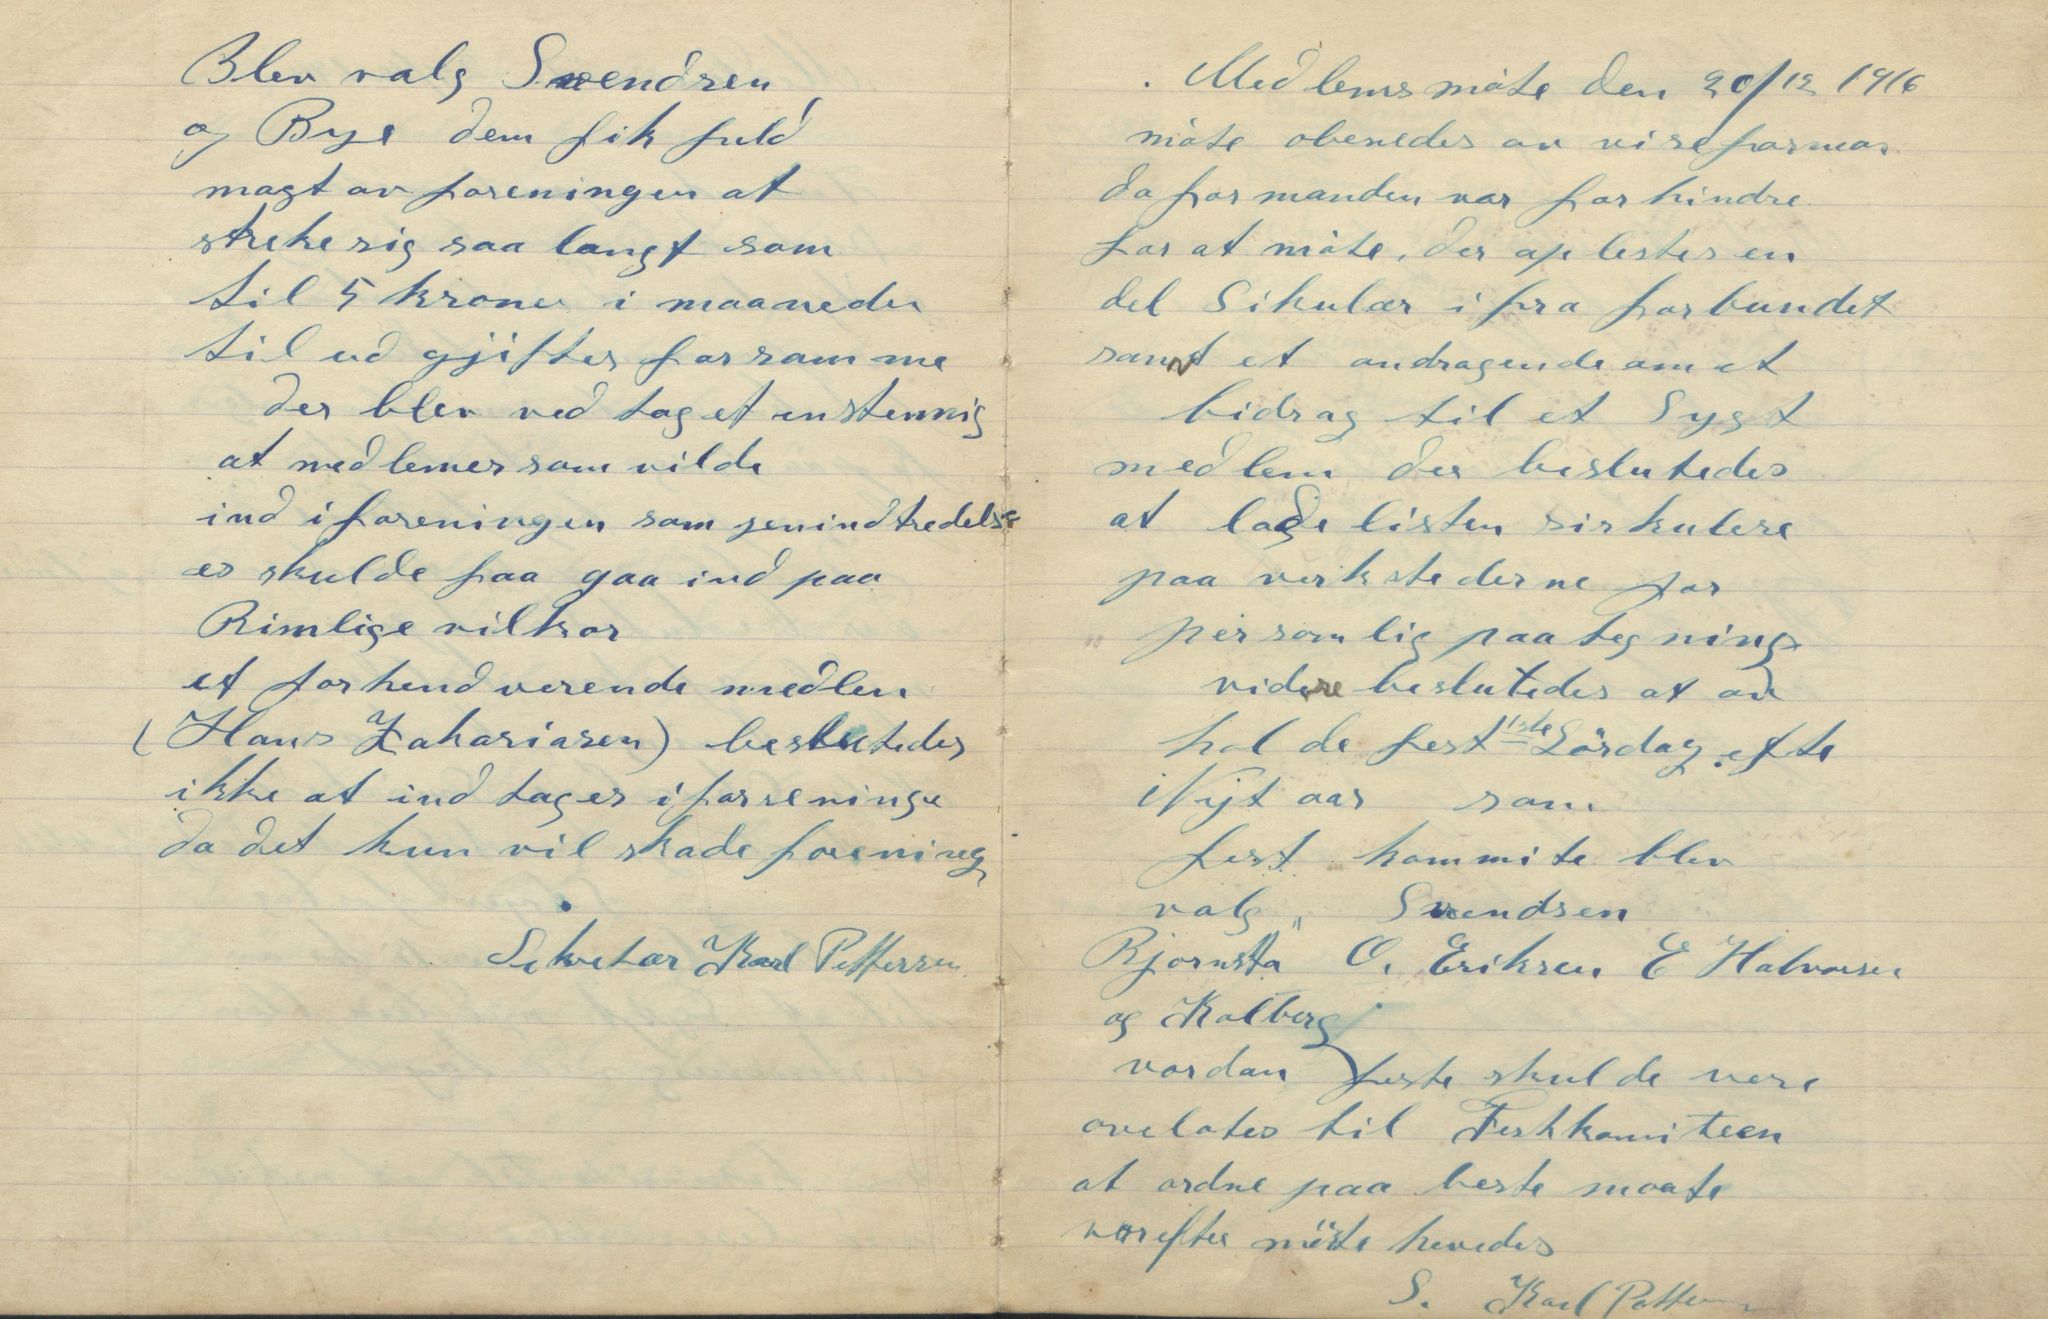 Blev valg Svendsen
og Bye dem fik fuld
magt av foreningen at
streke sig saa langt som
til 5 kroner i maaneden
til ud gjifter for samme
der blev ved taget enstemig
at medlemer som vilde
ind i foreningen som jenindtredelse
es skulde faa gaa ind paa
Rimlige vilkor
et forhend verende medlem
(Hans Zakariasen) beslutedes
ikke at ind tages i forreninge
da det kun vil skade forening
Sekretær Karl Pettersen
Medlems möte den 20/12 1916
möte obenedes av viseformar
da formanden var forhindre
for at möte, der oplestes en
del Sikulær i fra forbundet
samt et andragende om et
bidrag til et Sygt
medlem der beslutedes
at lade listen sirkulere
paa verkstederne for
personlig paategning
videre beslutedes at av
hol de fest 1ste Lördag efte
Nyt aar som
fest kommite blev
valg, Svendsen
Bjørnsta O. Eriksen E Halvorsen
og Kolberg
vordan feste skulde vere
ovelates til Festkomiteen
at ordne paa beste maate
vorefter möte hevedes
S. Karl Pettersen